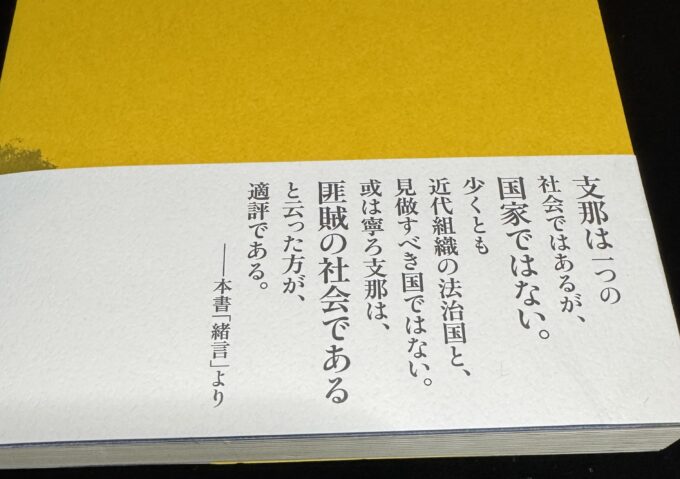 支那は一つの
社会ではあるが、
国家ではない。
少くとも
近代組織の法治国と、
見做すべき国ではない。
或は寧ろ支那は、
匪賊の社会である
と云った方が、
適評である。
──本書「緒言」より